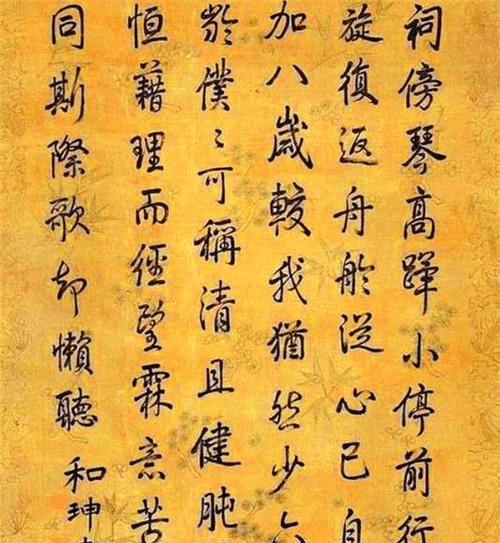 祠傍琴高蹕小停前行
旋復返舟舲從心已自
加八歲較我猶然少
於僕〻可稱清且健肫
恒藉理而經望霖意苦
同斯際歌却懶聽
和珅